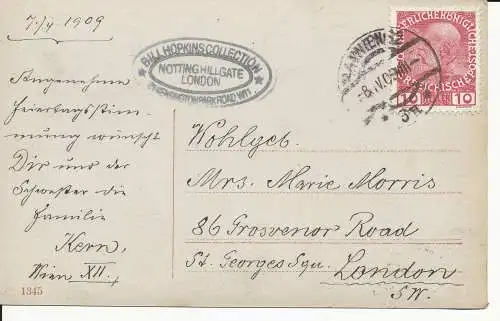 7./4 1909
Angenehme
Feiertagsstim-
mung wünscht
Dir und der
Schwester die
Familie
Kern,
Wien XII.
1345
BILL HOPKINS COLLECTION
NOTTING HILL GATE
LONDON
KENSINGTON PARK ROAD W11
-8.IV.09
10 10
Wohlgeb.
Mrs. Marie Morris
86 Grosvenor Road
St. Georges Squ. London
S.W.